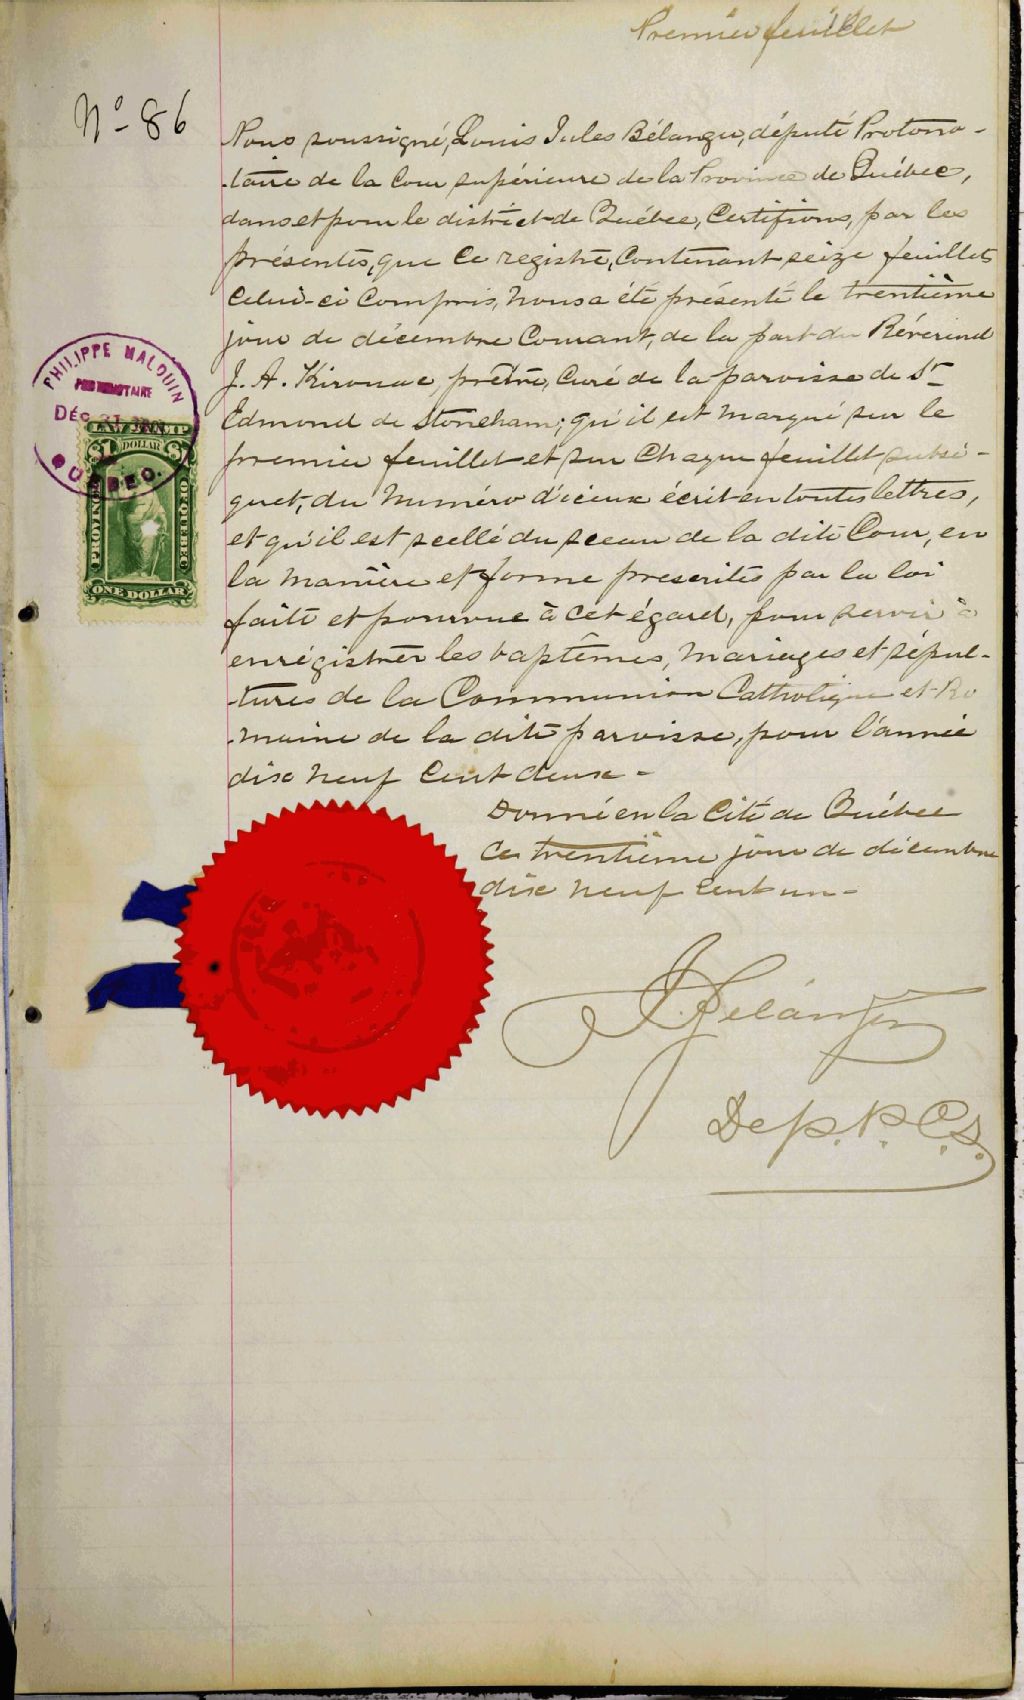 Premier feuillet
No 86
Nous soussigné, Louis Jules Bélanger, député Protono-
-taire de la Cour supérieure de la Province de Québec,
dans et pour le district de Québec, Certifions, par les
présentes, que ce registre, contenant seize feuillets
celui-ci compris, nous a été présenté le trentième
jour de décembre courant, de la part du Révérend
J. A. Kirouac, prêtre, curé de la paroisse de St
Edmond de Stoneham; qu'il est marqué sur le
premier feuillet et sur chaque feuillet subsé-
quet, du numéro d'iceux écrit en toutes lettres,
et qu'il est scellé du sceau de la dite Cour, en
la manière et forme prescrites par la loi
faite et pourvue à cet égard, pour servir à
enrégistrer les baptêmes, mariages et sépul-
-tures de la Communion Catholique et Ro
-maine de la dite paroisse, pour l'année
dix neuf cent deux -
Donné en la Cité de Québec
ce trentième jour de décembre
dix neuf cent un -
J. Bélanger
Dep. P. C. S.
PHILIPPE MALOUIN
PROTONOTAIRE
DÉC 31
QUEBEC.
$1 DOLLAR $1
PROVINCE OF QUEBEC
ONE DOLLAR